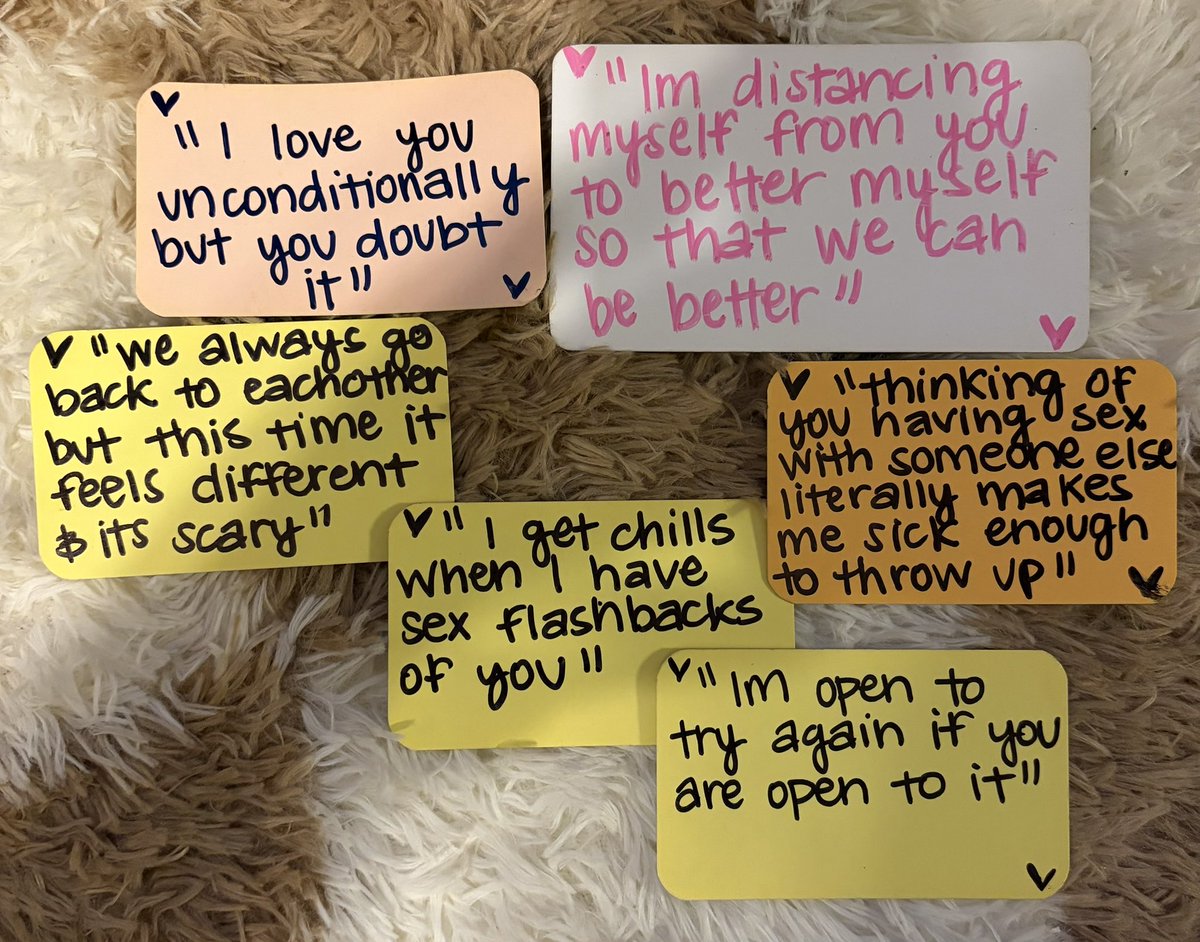 "I love you
unconditionally
but you doubt
it"
"Im distancing
myself from you
to better myself
so that we can
be better"
"we always go
back to eachother
but this time it
feels different
& its scary"
"thinking of
you having sex
with someone else
literally makes
me sick enough
to throw up"
"I get chills
when I have
sex flashbacks
of you"
"Im open to
try again if you
are open to it"